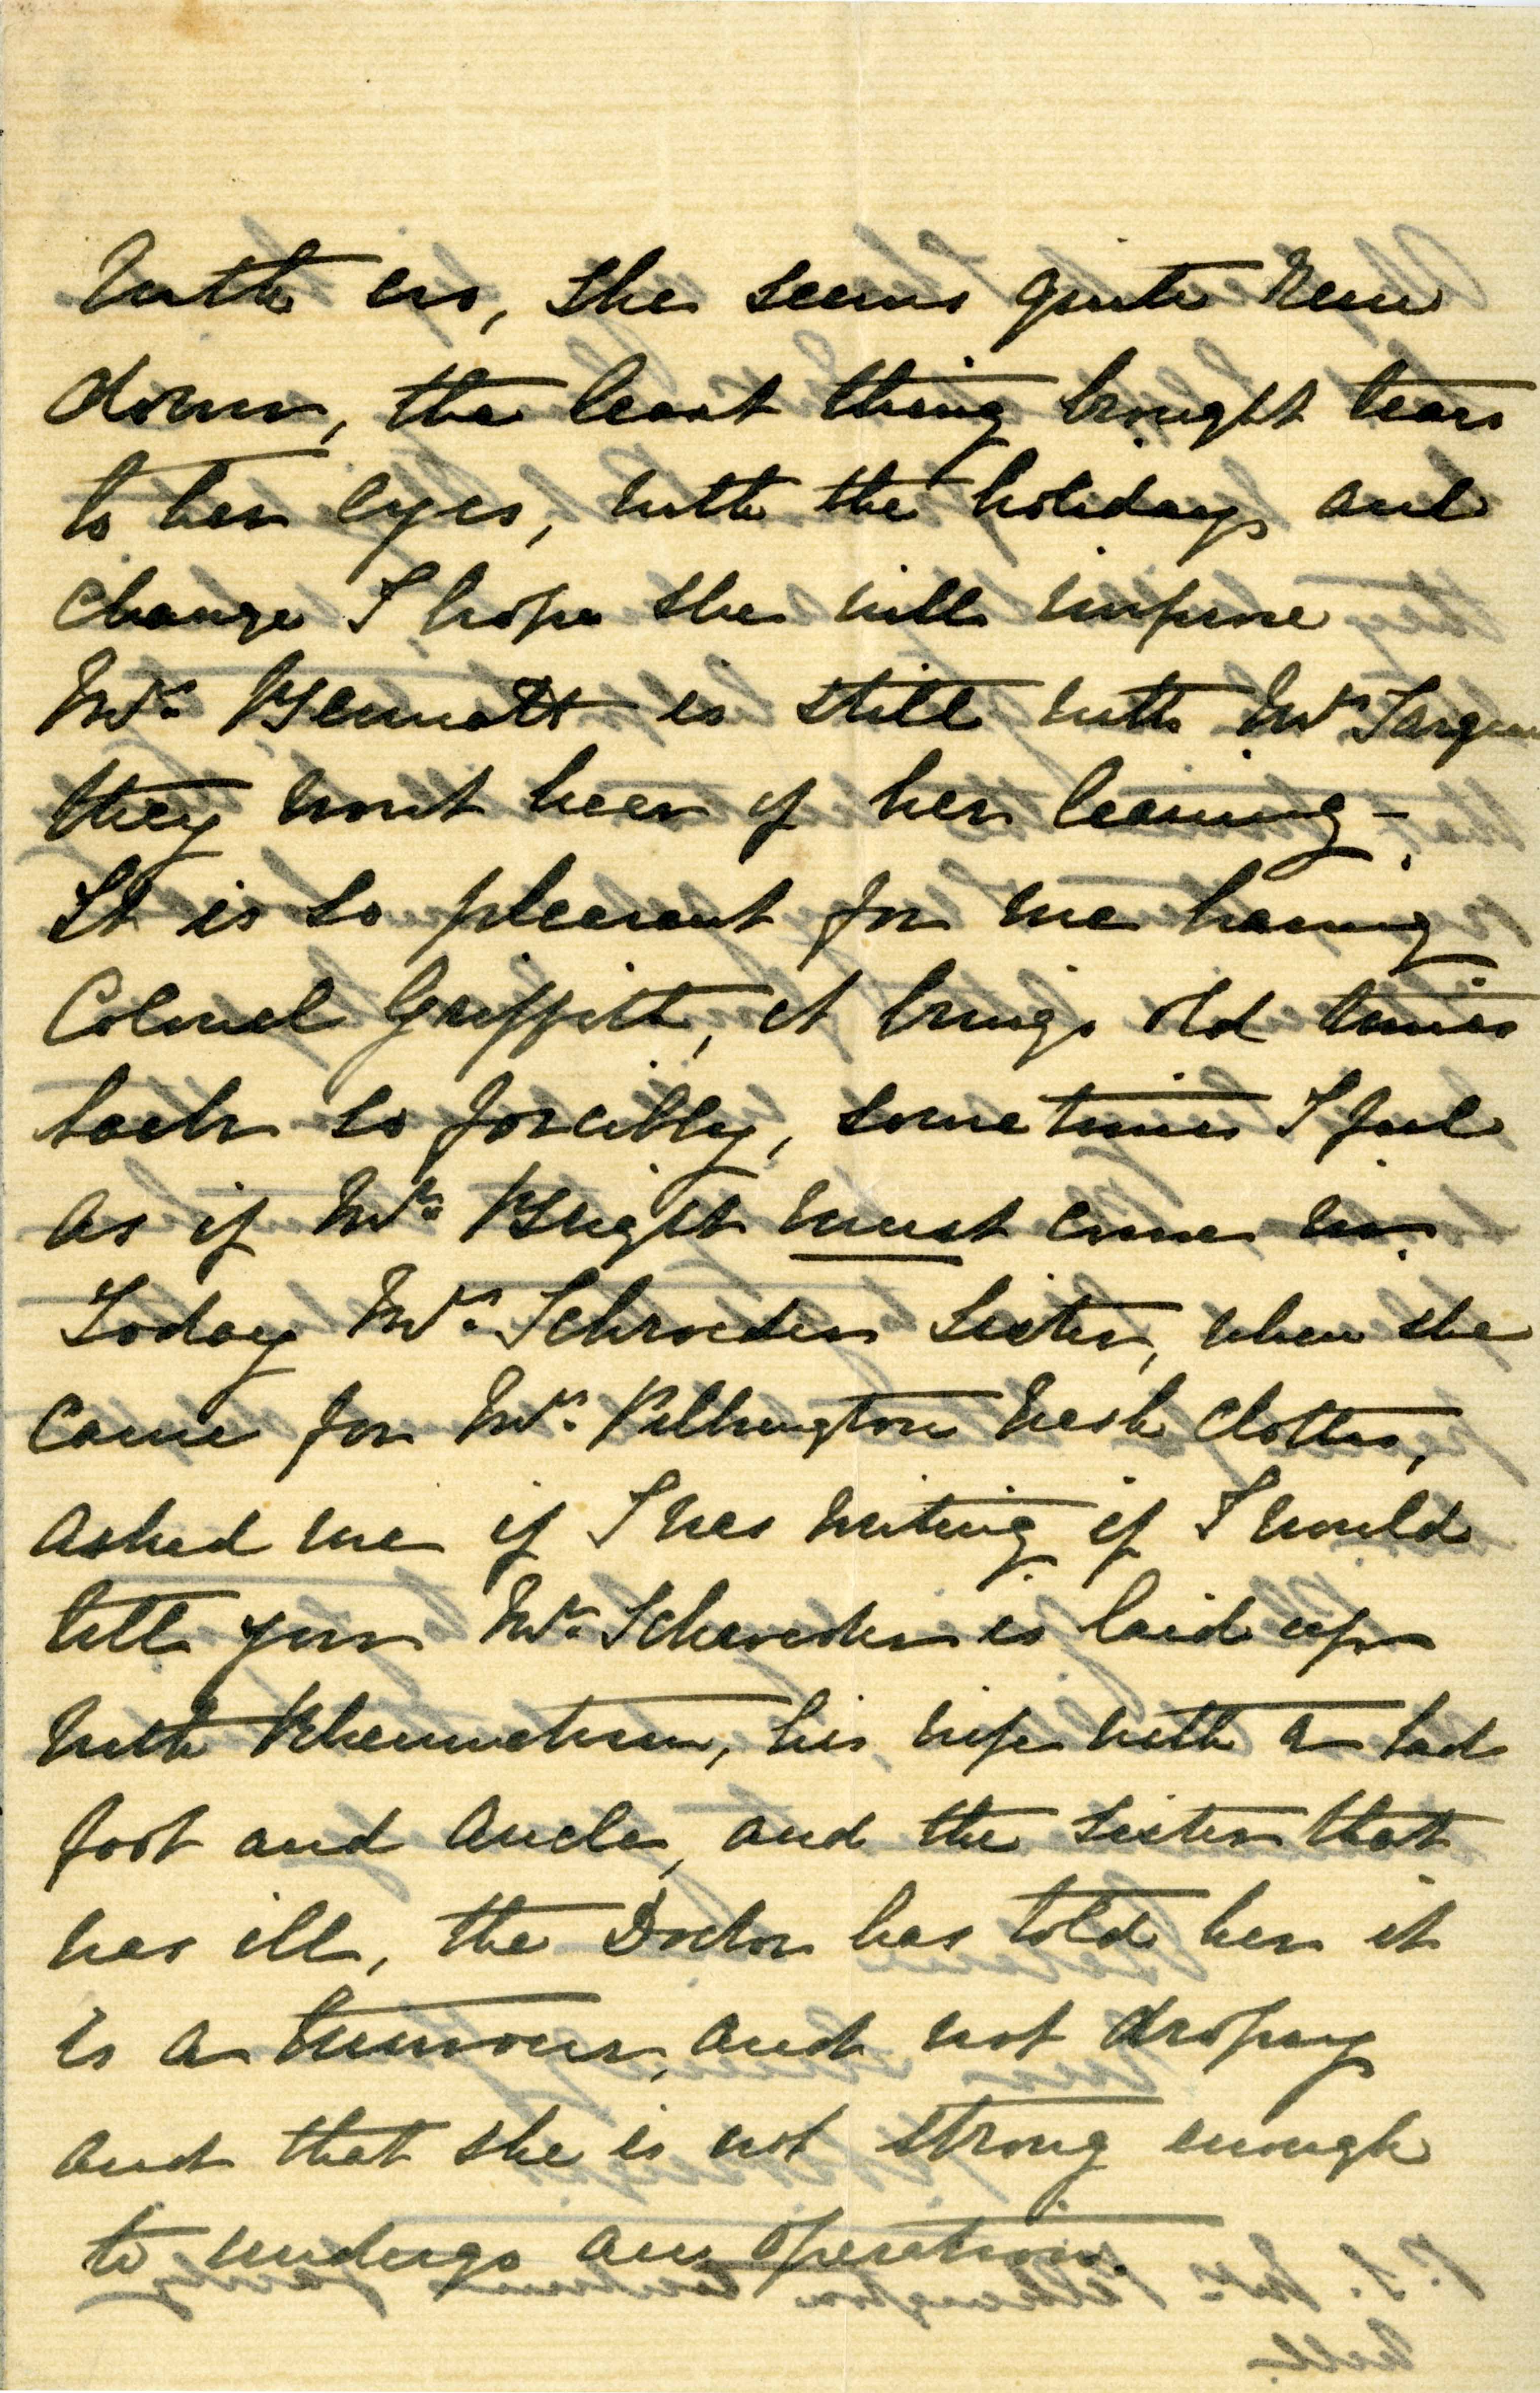 with us, she seems quite run
down, the least thing brought tears
to her eyes, with the holidays and
change I hope she will improve
Mrs. Bennett is still with Mrs
they wont hear of her leaving -
It is so pleasant for me having
Colonel Griffith, it brings old times
back so forcibly, sometimes I feel
as if Mr. Bright must come in.
Today Mrs. Schroeders Sister, when she
came for Mrs. Pilkington Wash Clothes,
asked me if I was writing if I would
tell you Mr. Schroeder is laid up
with Rheumatism, his wife with a bad
foot and Ancle, and the Sister that
was ill, the Doctor has told her it
is a tumour, and not dropsy
and that she is not strong enough
to undergo an operation.